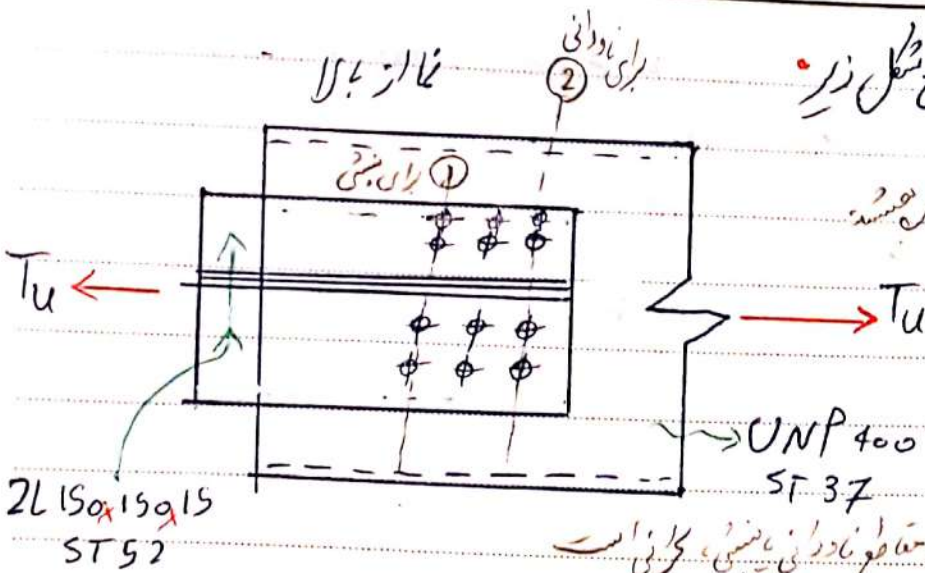 شکل زیر
نما از بالا
برای ناودانی
②
برای نبشی ①
هستند
Tu
Tu
UNP 400
ST 37
2L 150x150x15
ST52
مقاطع ناودانی یا نبشی، بحرانی است